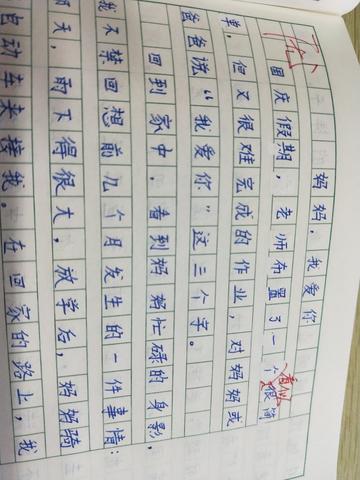 妈妈，我爱你
国庆假期，老师布置了一个看似很简
单，但又很难完成的作业，对妈妈或
爸爸说“我爱你”这三个字。
回到家中，看到妈妈忙碌的身影，
我不禁回想前几个月发生的一件事情：
那天，雨下得很大，放学后，妈妈骑
动车来接我。在回家的路上，我